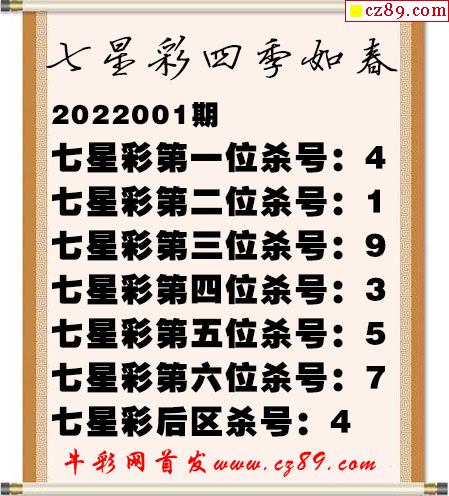 cz89.com
七星彩四季如春
2022001期
七星彩第一位杀号：4
七星彩第二位杀号：1
七星彩第三位杀号：9
七星彩第四位杀号：3
七星彩第五位杀号：5
七星彩第六位杀号：7
七星彩后区杀号：4
牛彩网首发www.cz89.com